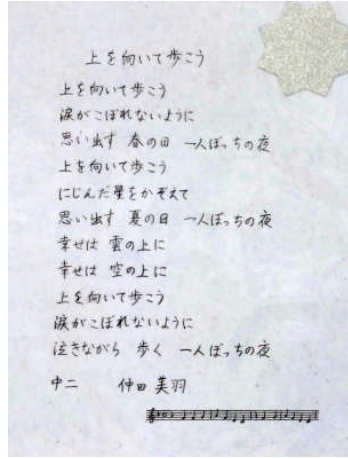 上を向いて歩こう
上を向いて歩こう
涙がこぼれないように
思い出す 春の日 一人ぼっちの夜
上を向いて歩こう
にじんだ星をかぞえて
思い出す 夏の日 一人ぼっちの夜
幸せは 雲の上に
幸せは 空の上に
上を向いて歩こう
涙がこぼれないように
泣きながら 歩く 一人ぼっちの夜
中二 仲田 美羽